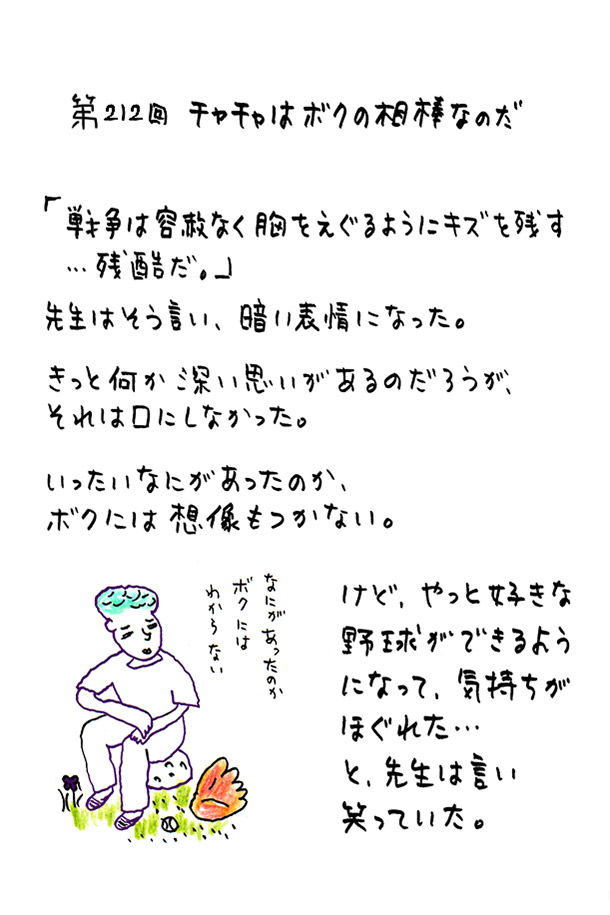 第212回 チャチャはボクの相棒なのだ
「戦争は容赦なく胸をえぐるようにキズを残す
…残酷だ。」
先生はそう言い、暗い表情になった。
きっと何か深い思いがあるのだろうが、
それは口にしなかった。
いったいなにがあったのか、
ボクには想像もつかない。
なにがあったのか
ボクには
わからない
けど、やっと好きな
野球ができるよう
になって、気持ちが
ほぐれた…
と、先生は言い
笑っていた。